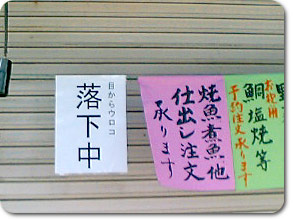 目からウロコ
落下中
野
鯛塩焼等
お祝用
予約注文承ります
焼魚煮魚他
仕出し注文
承ります